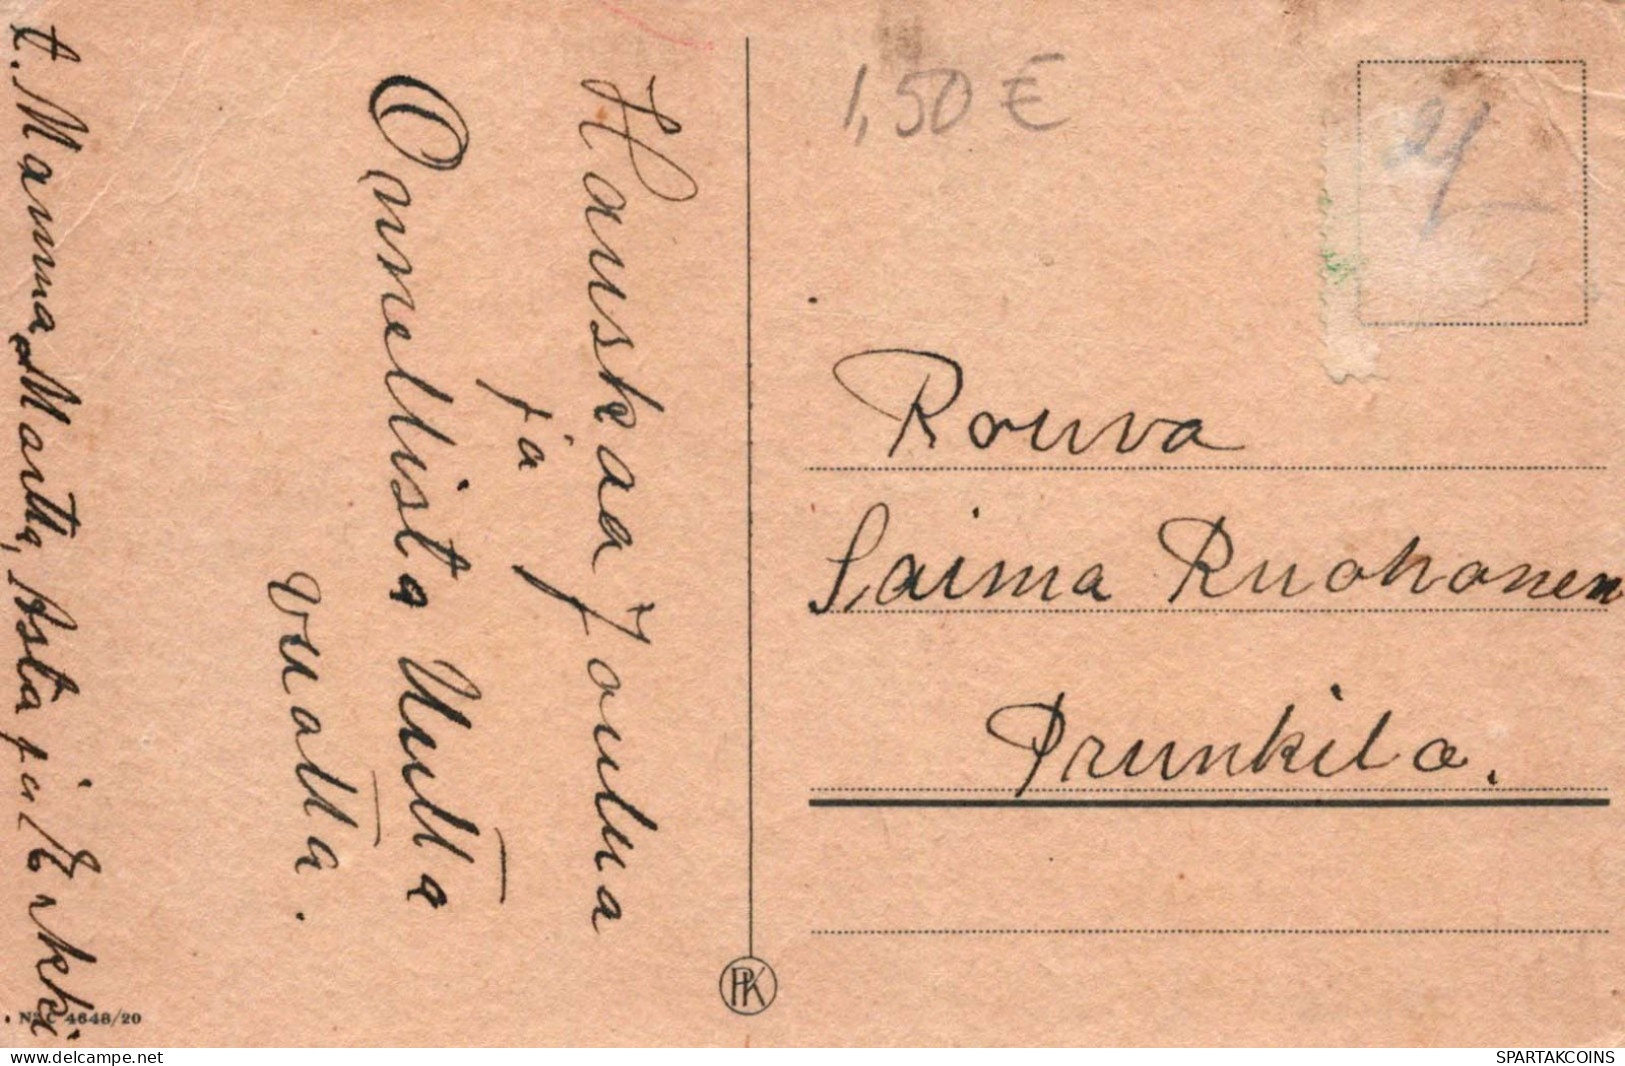 Hauskaa Joulua
ja
Onnellista Uutta
vuotta.
t. Mamma, Martta, Asta ja Erkki
1,50 €
Rouva
Saima Ruohonen
Prunkila.
PK
4648/20
delcampe.net
SPARTAKCOINS